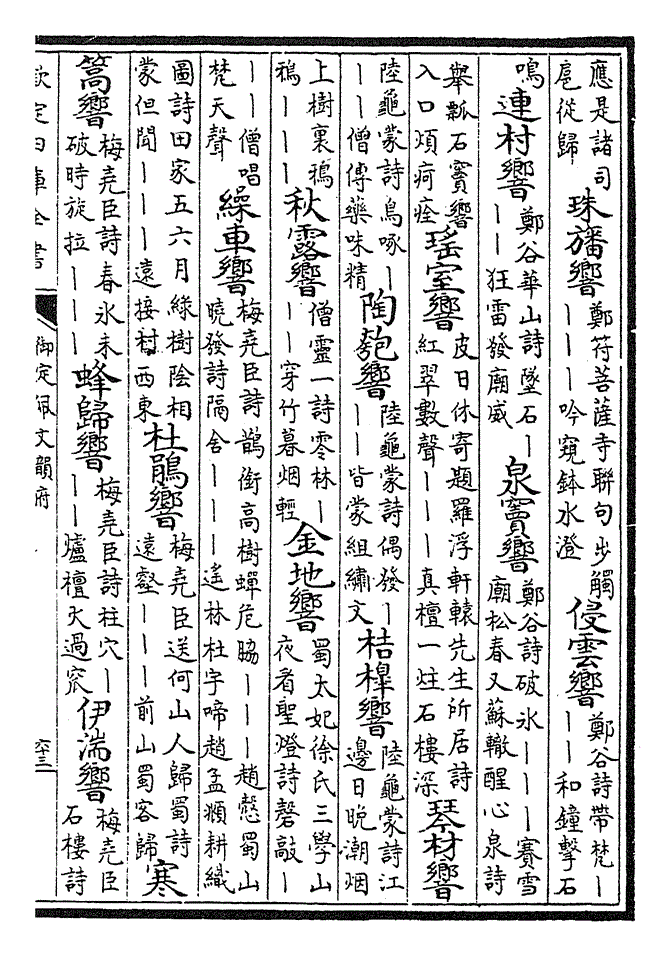 應是諸司扈從歸 珠旛響 鄭符菩薩寺聯句步觸｜｜｜吟窺鉢水澄 侵雲響 鄭谷詩帶梵｜｜｜和鐘擊石
鳴 連村響 鄭谷華山詩墜石｜｜｜狂雷發廟威 泉竇響 鄭谷詩破氷｜｜｜賽雪廟松春又蘇轍醒心泉詩
舉瓢石竇響入口煩痾痊 瑤室響 皮日休寄題羅浮軒轅先生所居詩紅翠數聲｜｜｜真檀一炷石樓深 琴材響
陸龜蒙詩鳥啄｜｜｜僧傳藥味精 陶匏響 陸龜蒙詩偶發｜｜｜皆蒙組繡文 桔槹響 陸龜蒙詩江邊日晚潮烟
上樹裏鴉鴉｜｜｜ 秋露響 僧靈一詩零林｜｜｜穿竹暮烟輕 金地響 蜀太妃徐氏三學山夜看聖燈詩磬敲｜
｜｜僧唱梵天聲 繰車響 梅堯臣詩鵲銜高樹蟬危脇｜｜｜趙慤蜀山曉發詩隔舍｜｜｜遙林杜字啼趙孟頫耕織
圖詩田家五六月綠樹陰相蒙但聞｜｜｜遠接村西東 杜鵑響 梅堯臣送何山人歸蜀詩遠壑｜｜｜前山蜀客歸 寒
篙響 梅堯臣詩春氷未破時旋拉｜｜｜ 蜂歸響 梅堯臣詩柱穴｜｜｜爐檀火過窓 伊湍響 梅堯臣石樓詩
欽定四庫全書 御定佩文韻府